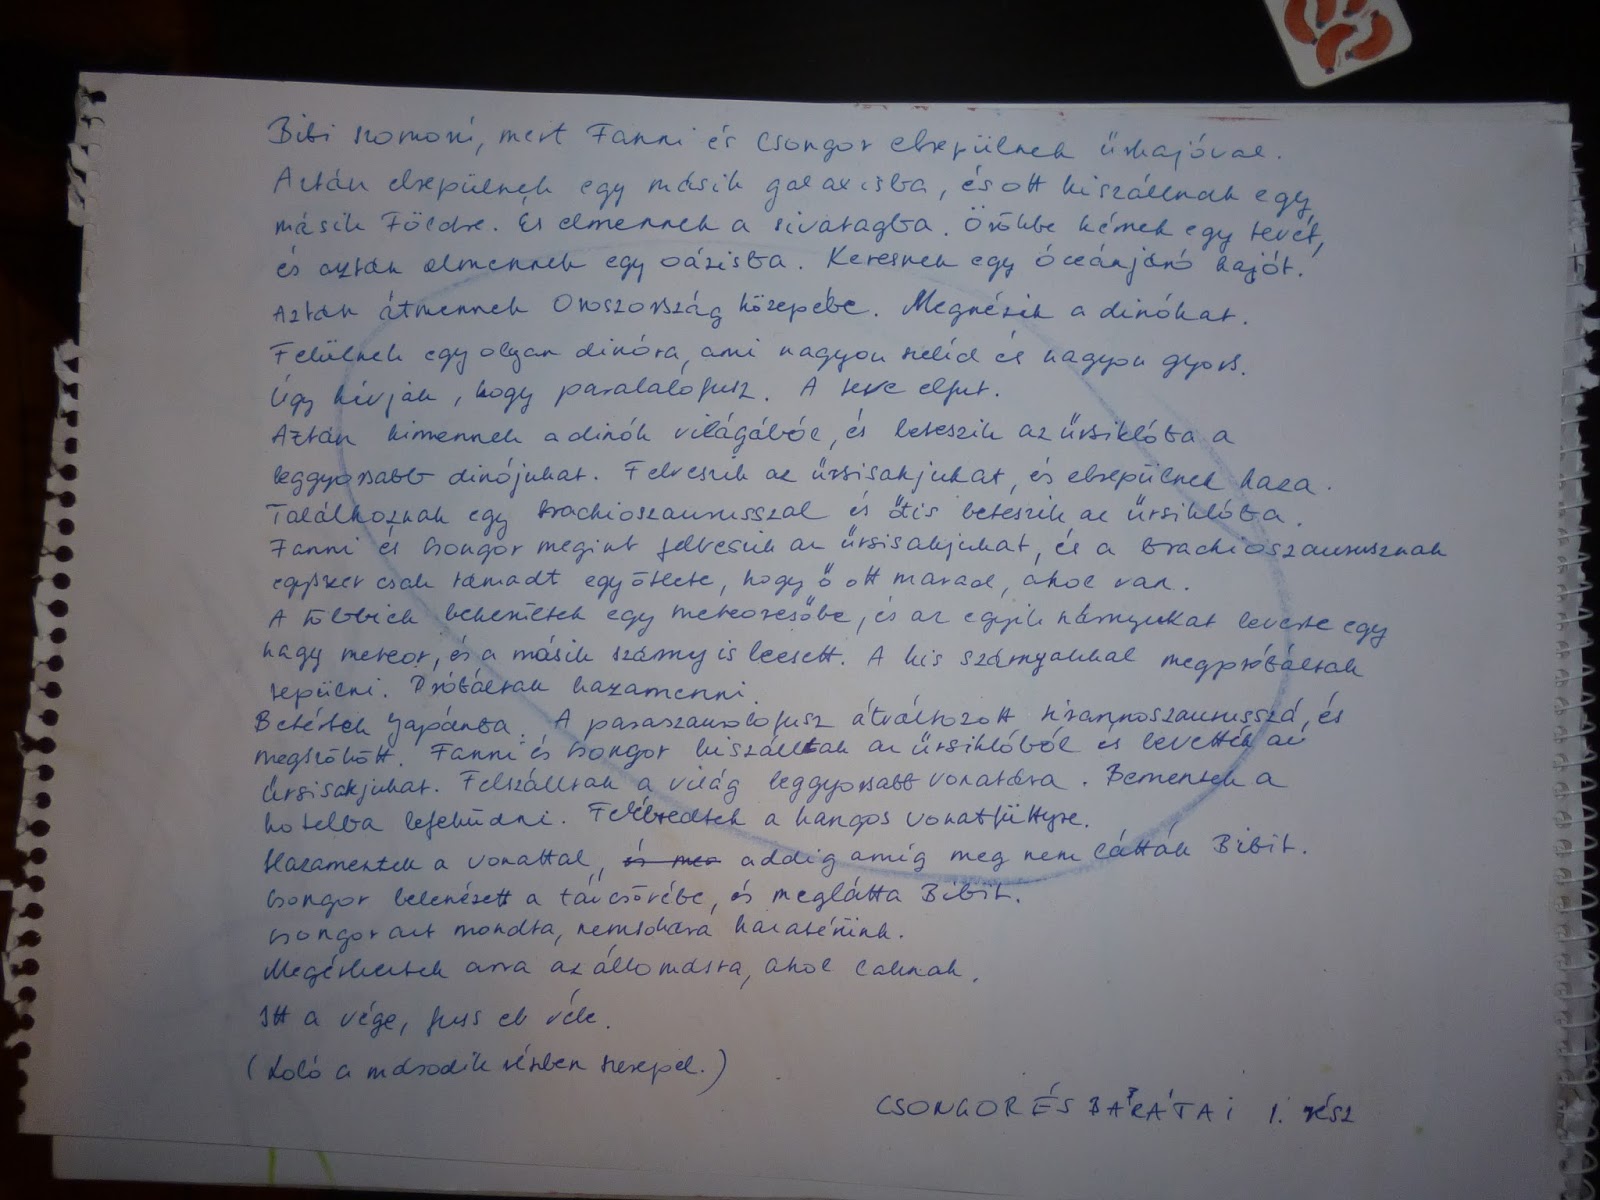 Bibi szomorú, mert Fanni és Csongor elrepülnek űrhajóval.
Aztán elrepülnek egy másik galaxisba, és ott kiszállnak egy
másik Földre. És elmennek a sivatagba. Örökbe kérnek egy tevét,
és aztán elmennek egy oázisba. Keresnek egy óceánjáró hajót.
Aztán átmennek Oroszország közepébe. Megnézik a dinókat.
Felülnek egy olyan dinóra, ami nagyon szelíd és nagyon gyors.
Úgy hívják, hogy paralalofusz. A teve elfut.
Aztán kimennek a dinók világából, és beteszik az űrsiklóba a
leggyorsabb dinójukat. Felveszik az űrsisakjukat, és elrepülnek haza.
Találkoznak egy brachioszaurusszal és őtis beteszik az űrsiklóba.
Fanni és Csongor megint felveszik az űrsisakjukat, és a brachioszaurusznak
egyszer csak támadt egy ötlete, hogy ő ott marad, ahol van.
A többiek bekerültek egy meteoresőbe, és az egyik szárnyukat leverte egy
nagy meteor, és a másik szárny is leesett. A kis szárnyakkal megpróbáltak
repülni. Próbáltak hazamenni.
Betértek Japánba. A paraszaurolofusz átváltozott tirannoszaurusszá, és
megszökött. Fanni és Csongor kiszálltak az űrsiklóból és levették az
űrsisakjukat. Felszálltak a világ leggyorsabb vonatára. Bementek a
hotelba lefeküdni. Felébredtek a hangos vonatfüttyre.
Hazamentek a vonattal, és meg addig amíg meg nem látták Bibit.
Csongor belenézett a távcsövébe, és meglátta Bibit.
Csongor azt mondta, nemsokára hazaérünk.
Megérkeztek arra az állomásra, ahol laknak.
Itt a vége, fuss el véle.
(Loló a második részben szerepel.)
CSONGOR ÉS BARÁTAI 1. rész